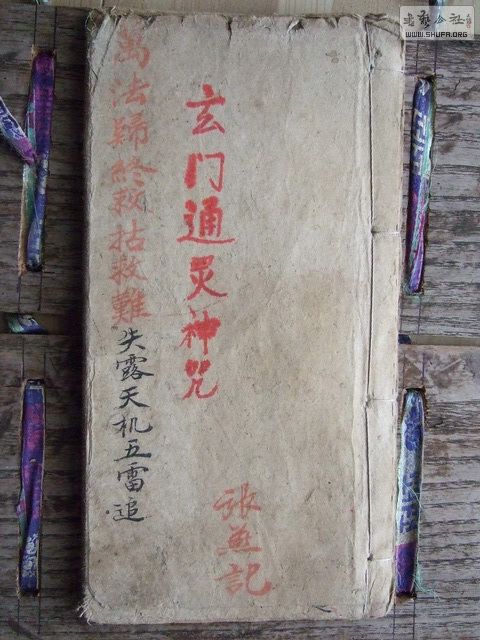 玄门通灵神咒
张
記
萬法歸終救苦救難
失露天机五雷追
书艺公社
WWW.SHUFA.ORG